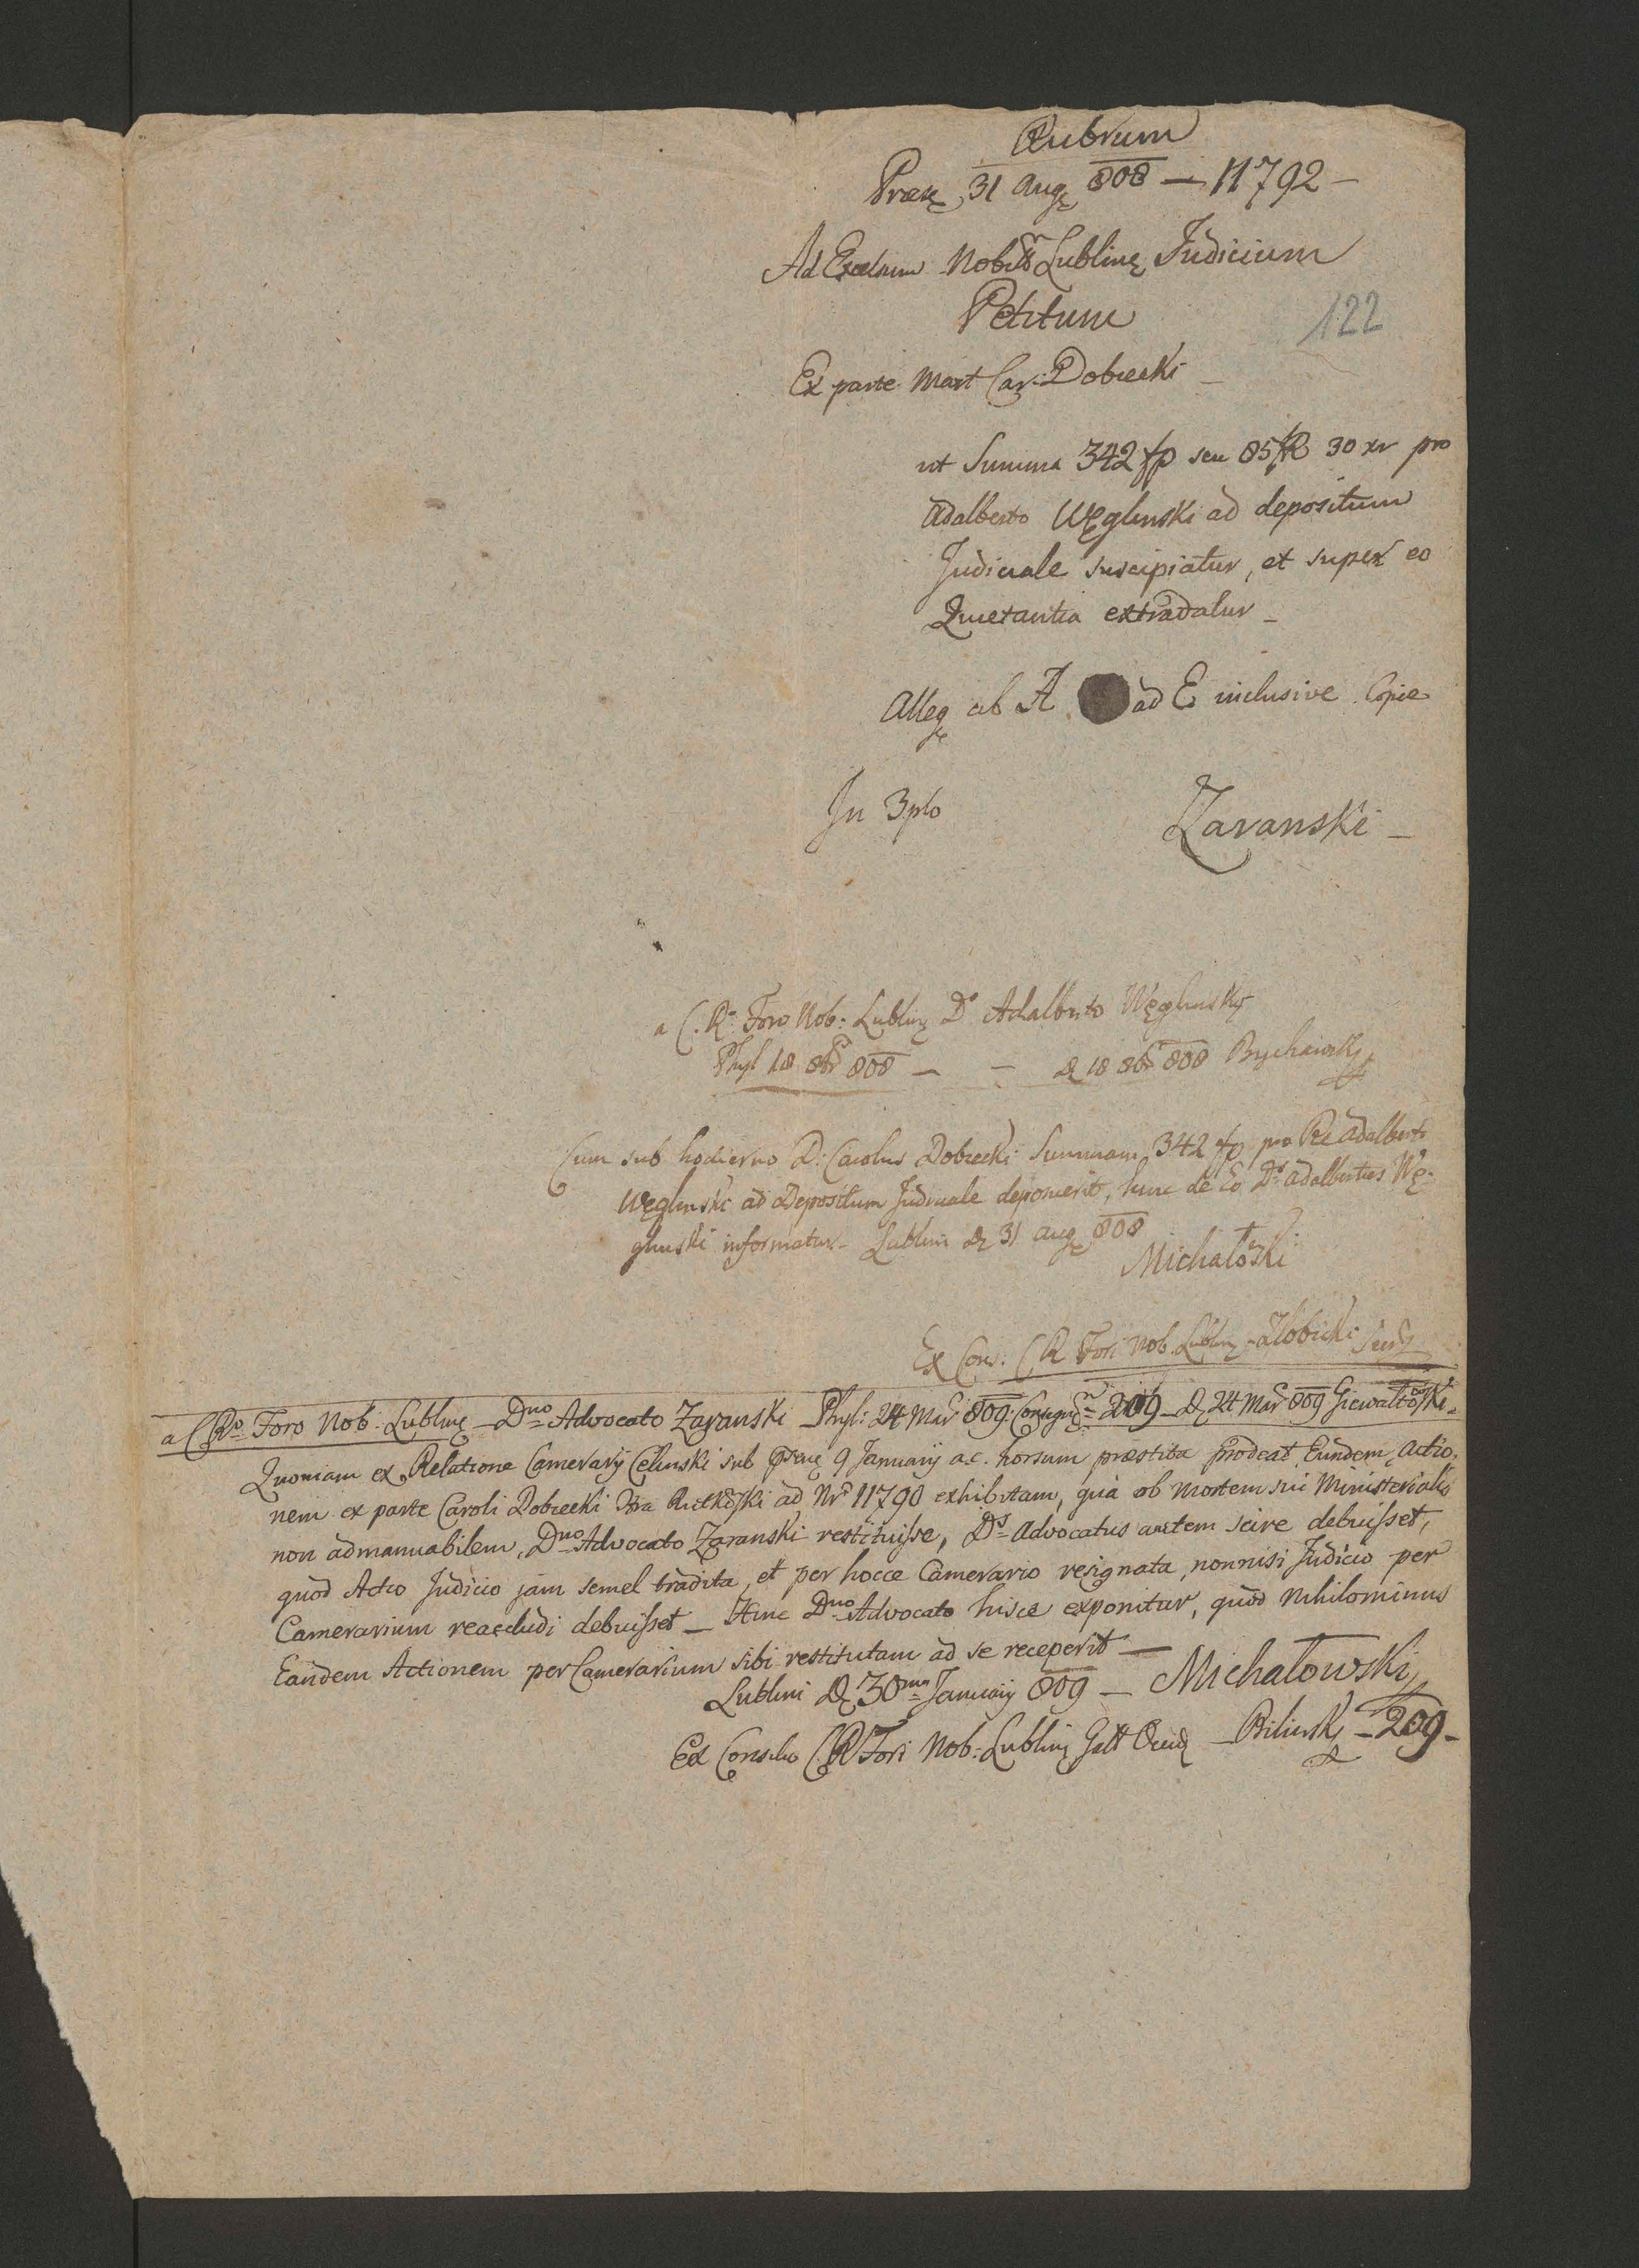 Rubrum
Præs 31 Aug 808 — 11792 —
Ad Excelsum Nobil Lublin Judicium
Petitum
122
Ex parte Mart Car: Dobrecki —
ut Summa 342 fp seu 85 fR 30 xr pro
Adalberto Węglinski ad depositum
Judiciale suscipiatur, et super eo
Quietantia extradatur —
Alleg ab A ad E inclusive Copie
In 3plo
Zaranski —
a C. R. Foro Nob: Lublin D. Adalberto Węglinsky
Phyl 18 8br 808 — — D 18 8br 808 Bychawsky
Cum sub hodierno D: Carolus Dobrecki Summam 342 fp pro Adalberto
Węglinski ad Depositum Judiciale deponerit, hinc de Eo Ds Adalbertus Wę-
glinski informatur — Lublini D 31 Aug 808
Michałoski
Ex Cons: C R Fori Nob. Lublin
a C Ro Foro Nob: Lublin — Dno Advocato Zaranski Phyl: 24 Mar 809 Consegn 209 — D 24 Mar 809 Giewaltoski
Quoniam ex Relatione Camerarij Celinski sub 9 Januarij a.c. horsum præstita prodeat, Eundem, Actio-
nem ex parte Caroli Dobrecki Ctra Rutkoski ad Nr 11790 exhibitam, quà ob mortem sui Ministerialis
non admanuabilem, Dno Advocato Zaranski restituisse, Ds Advocatus autem scire debuisset,
quod Actio Judicio jam semel tradita, et per hocce Camerario resignata, nonnisi Judicio per
Camerarium reaccludi debuisset — Hinc Dno Advocato hisce exponitur, quòd Nihilominus
Eandem Actionem per Camerarium sibi restitutam ad se receperit —
Lublini D 30ma Januarij 809 — Michałowski
Ex Consilio C R Fori Nob: Lublin Gall Occid — Bilinski — 209 —